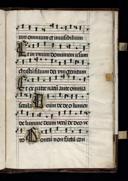 omnium et invisibilium
Et in unum dominum iesum
christum filium dei unigenitum
Et ex patre natum ante omnia
secula Deum de deo lumen
de lumine deum verum de deo ve
ro Genitum non factum con